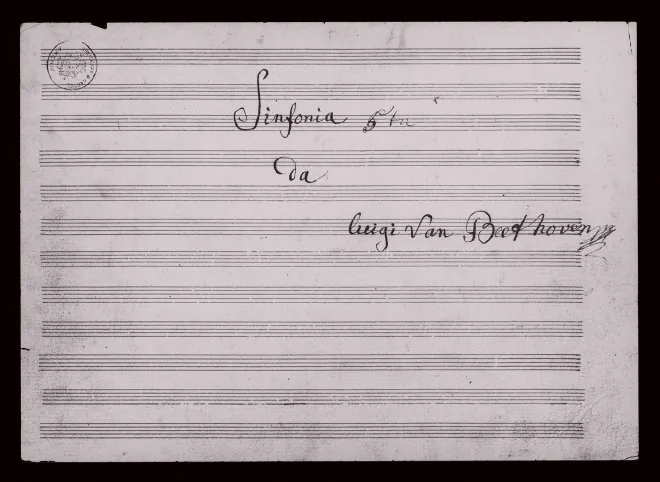 Sinfonia 5ta
da
luigi van Beethoven